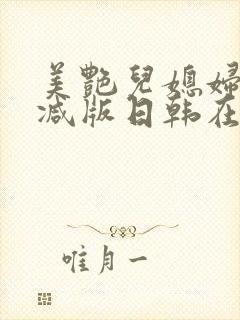 美艷兒媳婦
减版日韩在
唯月一